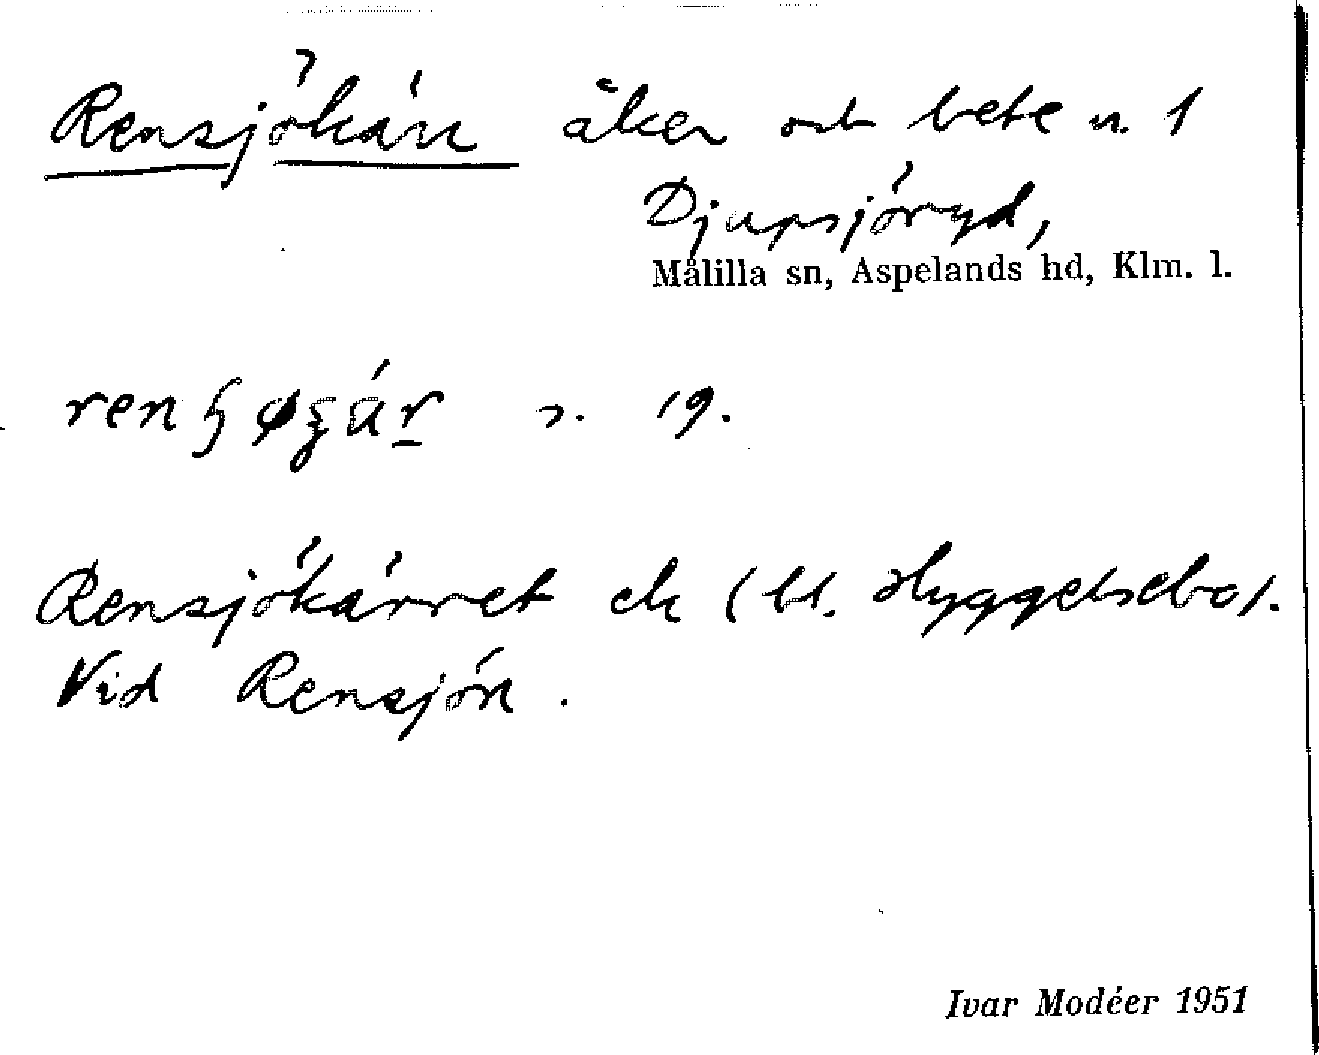 Rensjökärr åker och bete n. 1
Djupsjöryd,
Målilla sn, Aspelands hd, Klm. l.
s. 19.
Rensjökärret ek (bl. Hyggelsebo).
Vid Rensjön.
Ivar Modéer 1951